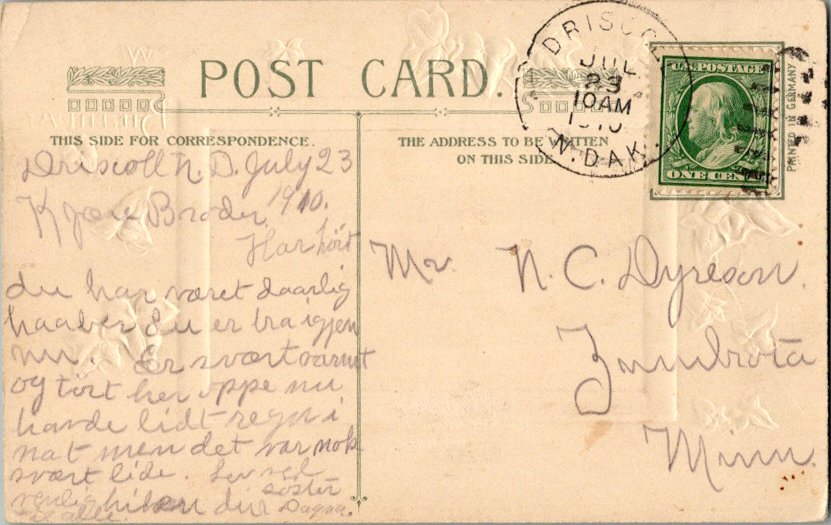 POST CARD.
THIS SIDE FOR CORRESPONDENCE.
THE ADDRESS TO BE WRITTEN
ON THIS SIDE
DRISCOLL
JUL
23
10AM
1910
N. DAK.
U.S. POSTAGE
ONE CENT
PRINTED IN GERMANY
Driscoll N. D. July 23
1910.
Kjære Broder.
Har hört
du har været daarlig
haaber du er bra igjen
nu. Er svært varmt
og tört her oppe nu
havde lidt regn i
nat men det var nok
svært lide. Lev vel
venlig hilsen din söster
Dagna.
Mr. N. C. Dyreson.
Zumbrota
Minn.